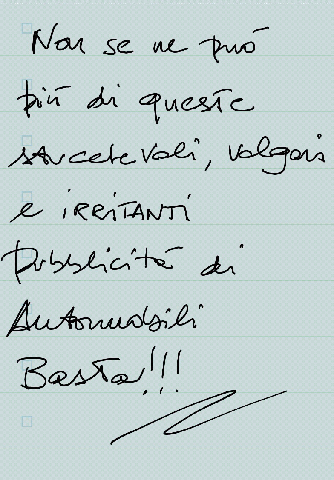 Non se ne può
più di queste
stucchevoli, volgari
e IRRITANTI
Pubblicità di
Automobili
Basta!!!